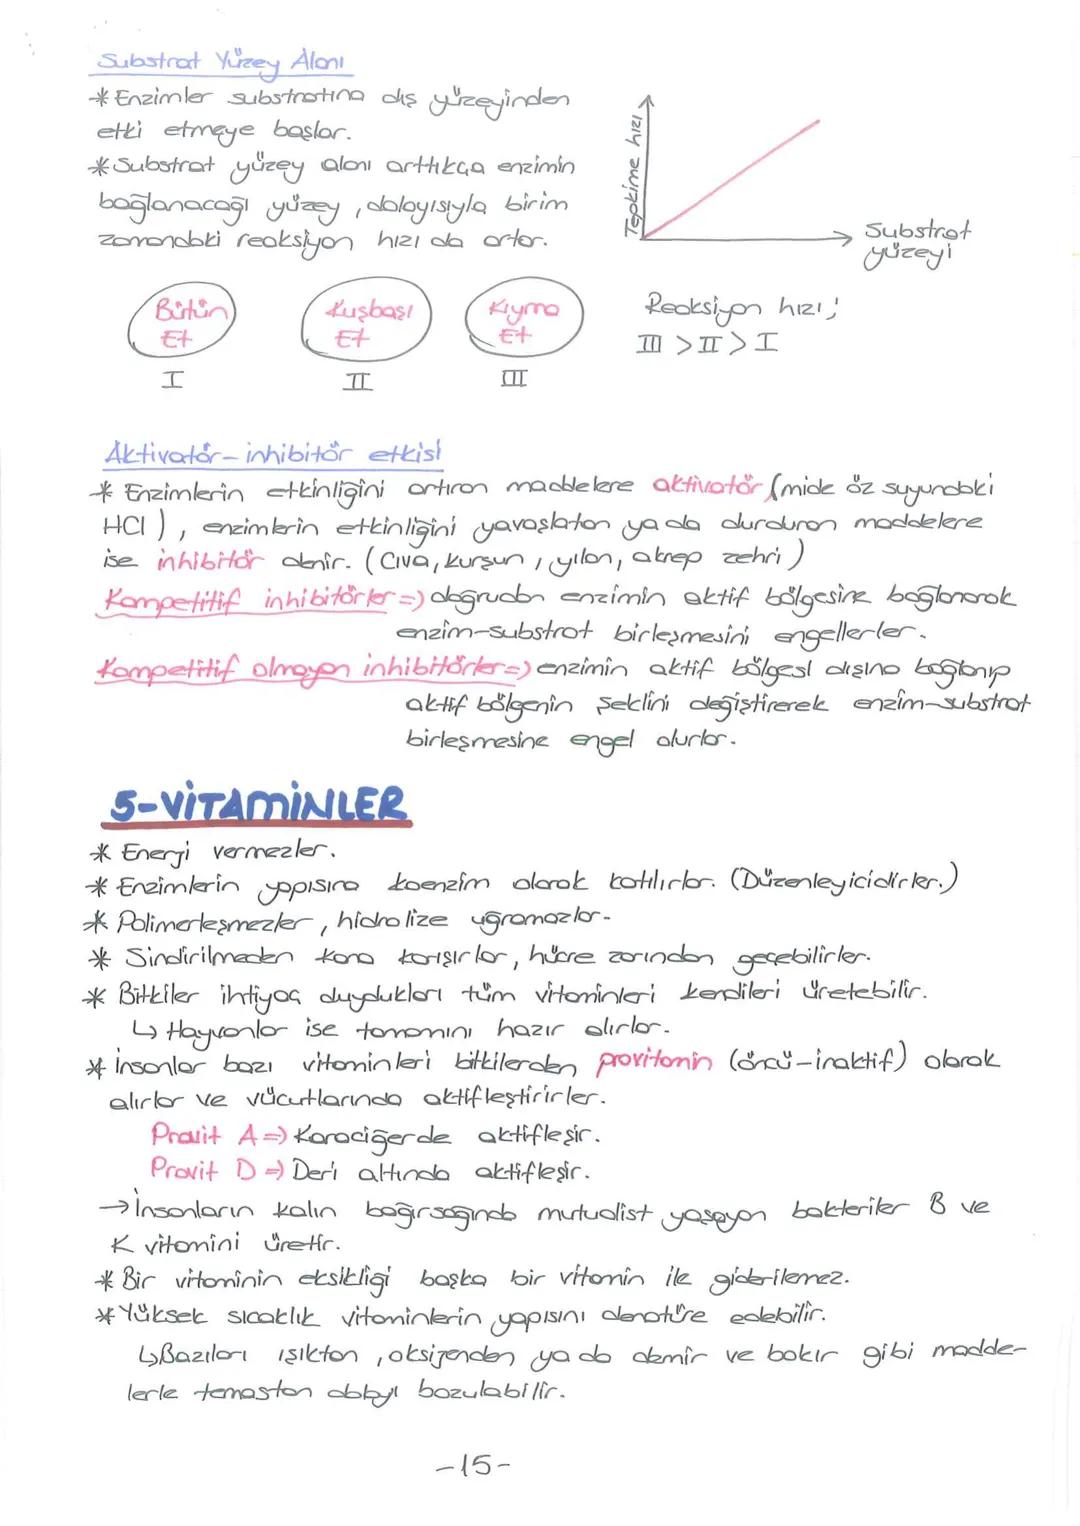 Substrat Yüzey Alanı
* Enzimler substratına dış yüzeyinden
etki etmeye başlar.
* Substrat yüzey alanı arttıkça enzimin
bağlanacağı yüzey, dolayısıyla birim
zamandaki reaksiyon hızı da artar.
Tepkime hızı
Substrat
yüzeyi
Bütün
Et
I
Kuşbaşı
Et
II
Kıyma
Et
III
Reaksiyon hızı;
III > II > I
Aktivatör-inhibitör etkisi
* Enzimlerin etkinliğini artıran maddelere aktivatör (mide öz suyundaki
HCl), enzimlerin etkinliğini yavaşlatan ya da durduran maddelere
ise inhibitör denir. (Cıva, kurşun, yılan, akrep zehri)
Kompetitif inhibitörler => doğrudan enzimin aktif bölgesine bağlanarak
enzim-substrat birleşmesini engellerler.
Kompetitif olmayan inhibitörler => enzimin aktif bölgesi dışına bağlanıp
aktif bölgenin şeklini değiştirerek enzim-substrat
birleşmesine engel olurlar.
5-VİTAMİNLER
* Energi vermezler.
* Enzimlerin yapısına koenzim olarak katılırlar. (Düzenleyicidirler.)
* Polimerleşmezler, hidrolize uğramazlar.
* Sindirilmeden kana karışırlar, hücre zarından geçebilirler.
* Bitkiler ihtiyaç duydukları tüm vitaminleri kendileri üretebilir.
↳ Hayvanlar ise tamamını hazır alırlar.
* İnsanlar bazı vitaminleri bitkilerden provitamin (öncü-inaktif) olarak
alırlar ve vücutlarında aktifleştirirler.
Provit A => Karaciğerde aktifleşir.
Provit D => Deri altında aktifleşir.
→ İnsanların kalın bağırsağında mutualist yaşayan bakteriler B ve
K vitamini üretir.
* Bir vitaminin eksikliği başka bir vitamin ile giderilemez.
* Yüksek sıcaklık vitaminlerin yapısını denatüre edebilir.
↳ Bazıları ışıktan, oksijenden ya da demir ve bakır gibi madde-
lerle temastan dolayı bozulabilir.
-15-